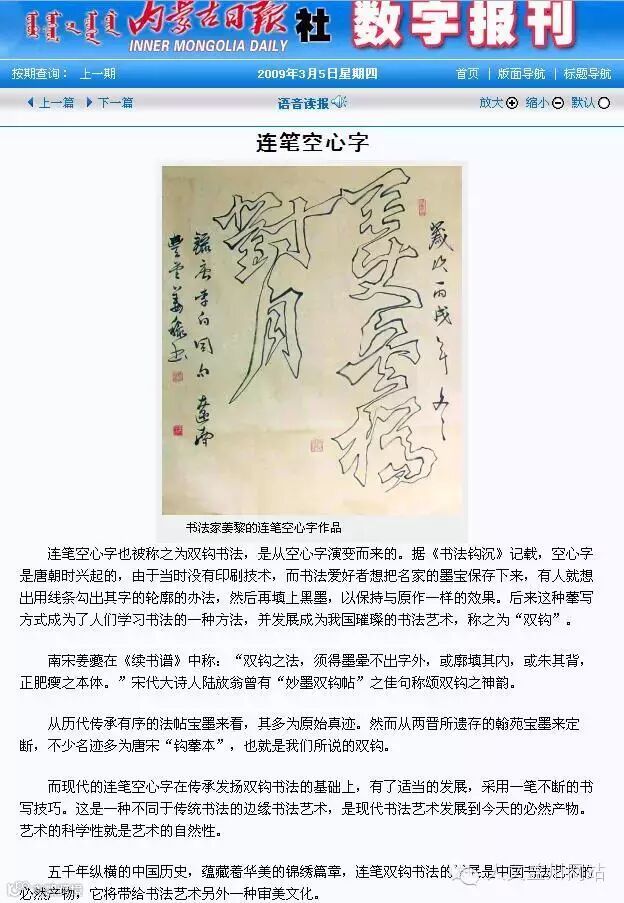 内蒙古日报社 数字报刊
INNER MONGOLIA DAILY
按期查询： 上一期 2009年3月5日星期四 首页 | 版面导航 | 标题导航
上一篇 下一篇 语音读报 放大 缩小 默认
连笔空心字
歲次丙戌年冬
舉杯邀
對月
書法家姜黎的连笔空心字作品
连笔空心字也被称之为双钩书法，是从空心字演变而来的。据《书法钩沉》记载，空心字
是唐朝时兴起的，由于当时没有印刷技术，而书法爱好者想把名家的墨宝保存下来，有人就想
出用线条勾出其字的轮廓的办法，然后再填上黑墨，以保持与原作一样的效果。后来这种摹写
方式成为了人们学习书法的一种方法，并发展成为我国璀璨的书法艺术，称之为“双钩”。
南宋姜夔在《续书谱》中称：“双钩之法，须得墨晕不出字外，或廓填其内，或朱其背，
正肥瘦之本体。”宋代大诗人陆放翁曾有“妙墨双钩帖”之佳句称颂双钩之神韵。
从历代传承有序的法帖宝墨来看，其多为原始真迹。然而从两晋所遗存的翰苑宝墨来定
断，不少名迹多为唐宋“钩摹本”，也就是我们所说的双钩。
而现代的连笔空心字在传承发扬双钩书法的基础上，有了适当的发展，采用一笔不断的书
写技巧。这是一种不同于传统书法的边缘书法艺术，是现代书法艺术发展到今天的必然产物。
艺术的科学性就是艺术的自然性。
五千年纵横的中国历史，蕴藏着华美的锦绣篇章，连笔双钩书法的发展是中国书法艺术的
必然产物，它将带给书法艺术另外一种审美文化。